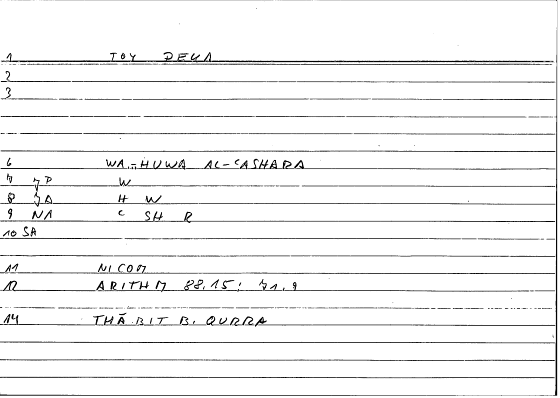 1 TOY DEKA
2
3
6 WA-HUWA AL-ʿASHARA
7 W
8 H W
9 NA ʿ SH R
10 SA
11 NICOM
12 ARITHM 88.15; 71.9
14 THĀBIT B. QURRA